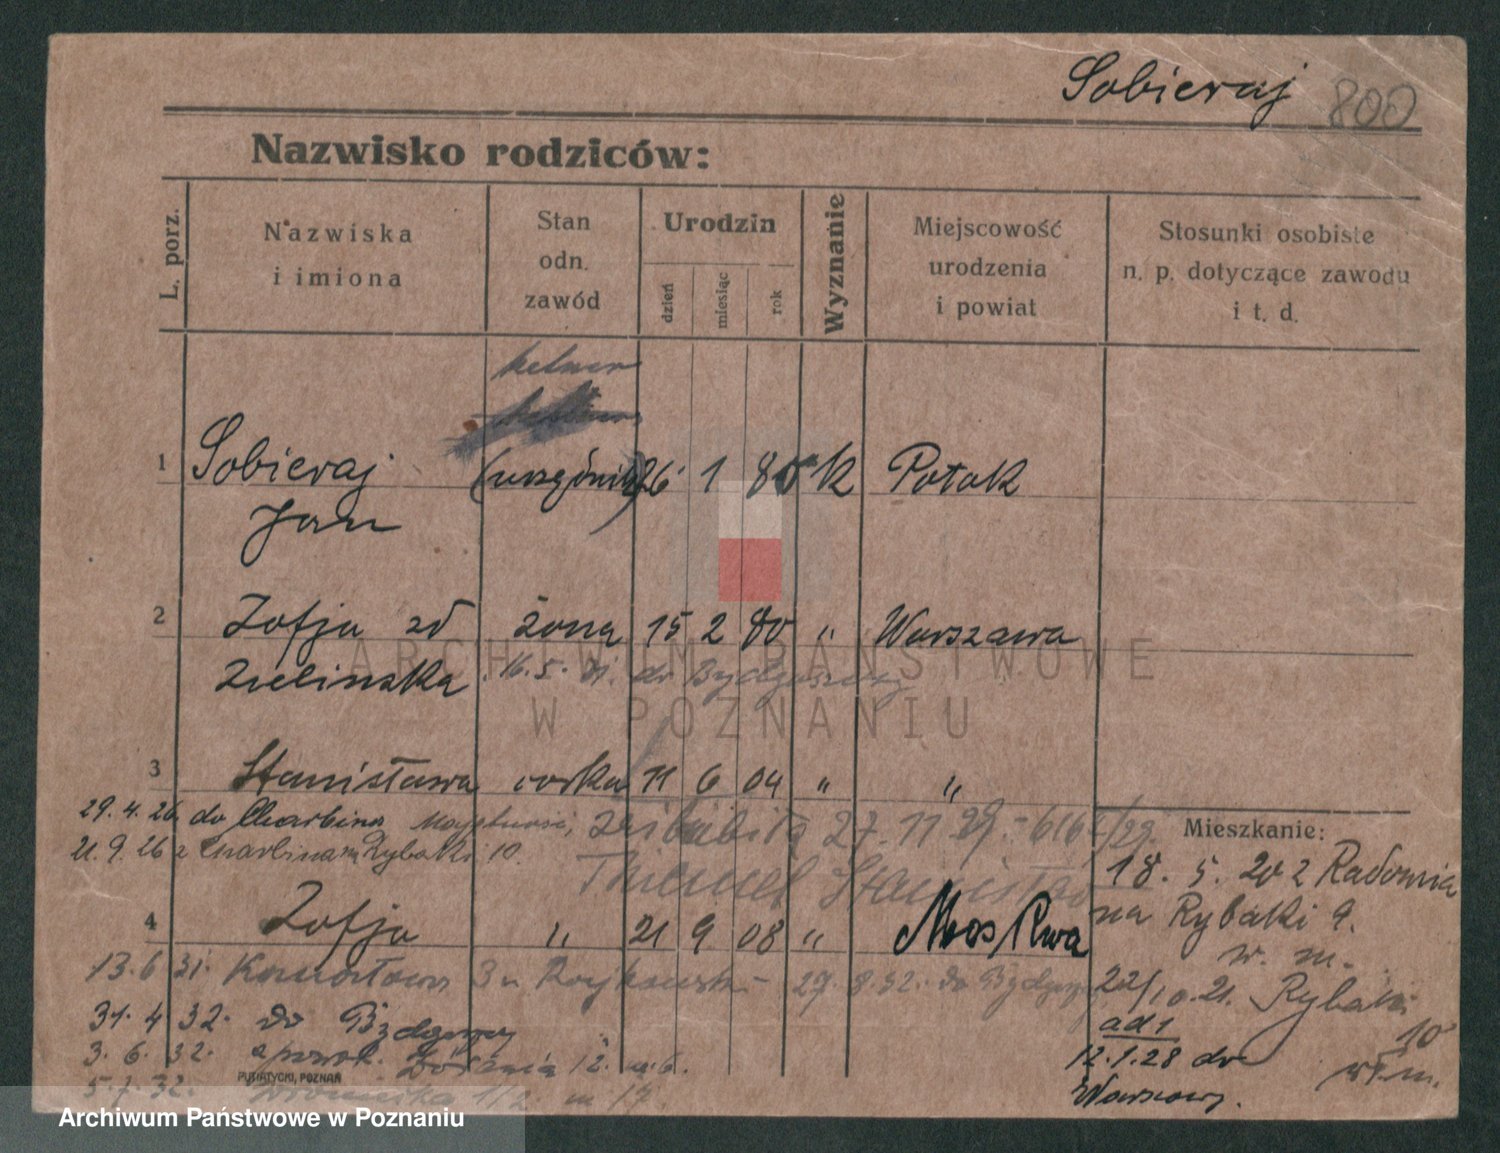 Sobieraj 800
Nazwisko rodziców:
L. porz.
Nazwiska
i imiona
Stan
odn.
zawód
Urodzin
dzień
miesiąc
rok
Wyznanie
Miejscowość
urodzenia
i powiat
Stosunki osobiste
n. p. dotyczące zawodu
i t. d.
kelner
1 Sobieraj 26 1 80 K Potok
Jan
2 Zofja zd żona 15 2 80 " Warszawa
Zielinska 16.5. do Bydgoszczy
ARCHIWUM PAŃSTWOWE
W POZNANIU
3 Stanisława corka 11 6 04 " "
29.4.26 do Charbina
21.9.26 z Charbina Rybaki 10.
27.11.29
Stanisław
4 Zofja " 21 9 08 " Moskwa
13.6.31. 27.8.32. do Bydgoszczy
31.4.32. do Bydgoszczy
3.6.32. z powrot. 12. m. 6.
5.7.32.
PUTIATYCKI, POZNAŃ
Mieszkanie:
18. 5. 20 z Radomia
na Rybaki 9.
w. m.
22/10.21. Rybaki
10
ad 1 w m.
12.1.28 do
Warszawy.
Archiwum Państwowe w Poznaniu